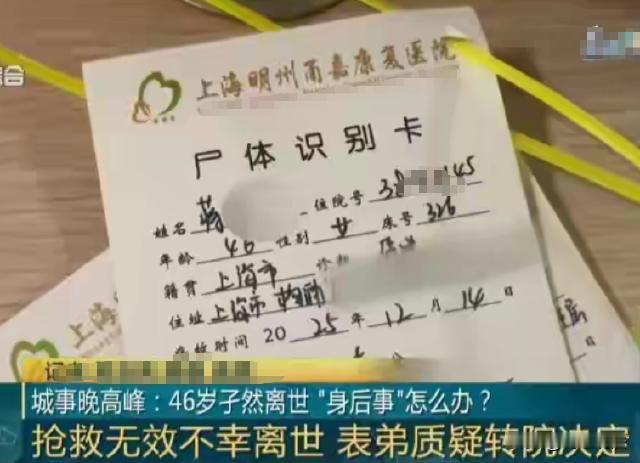 综合
上海明州甬嘉康复医院
尸体识别卡
姓名 蒋 住院号 38 145
年龄 46 性别 女 床号 326
籍贯 上海市 诊断
住址 上海市
时间 2025年12月14日
上海
记者
城事晚高峰：46岁孑然离世 "身后事"怎么办？
抢救无效不幸离世 表弟质疑转院决定